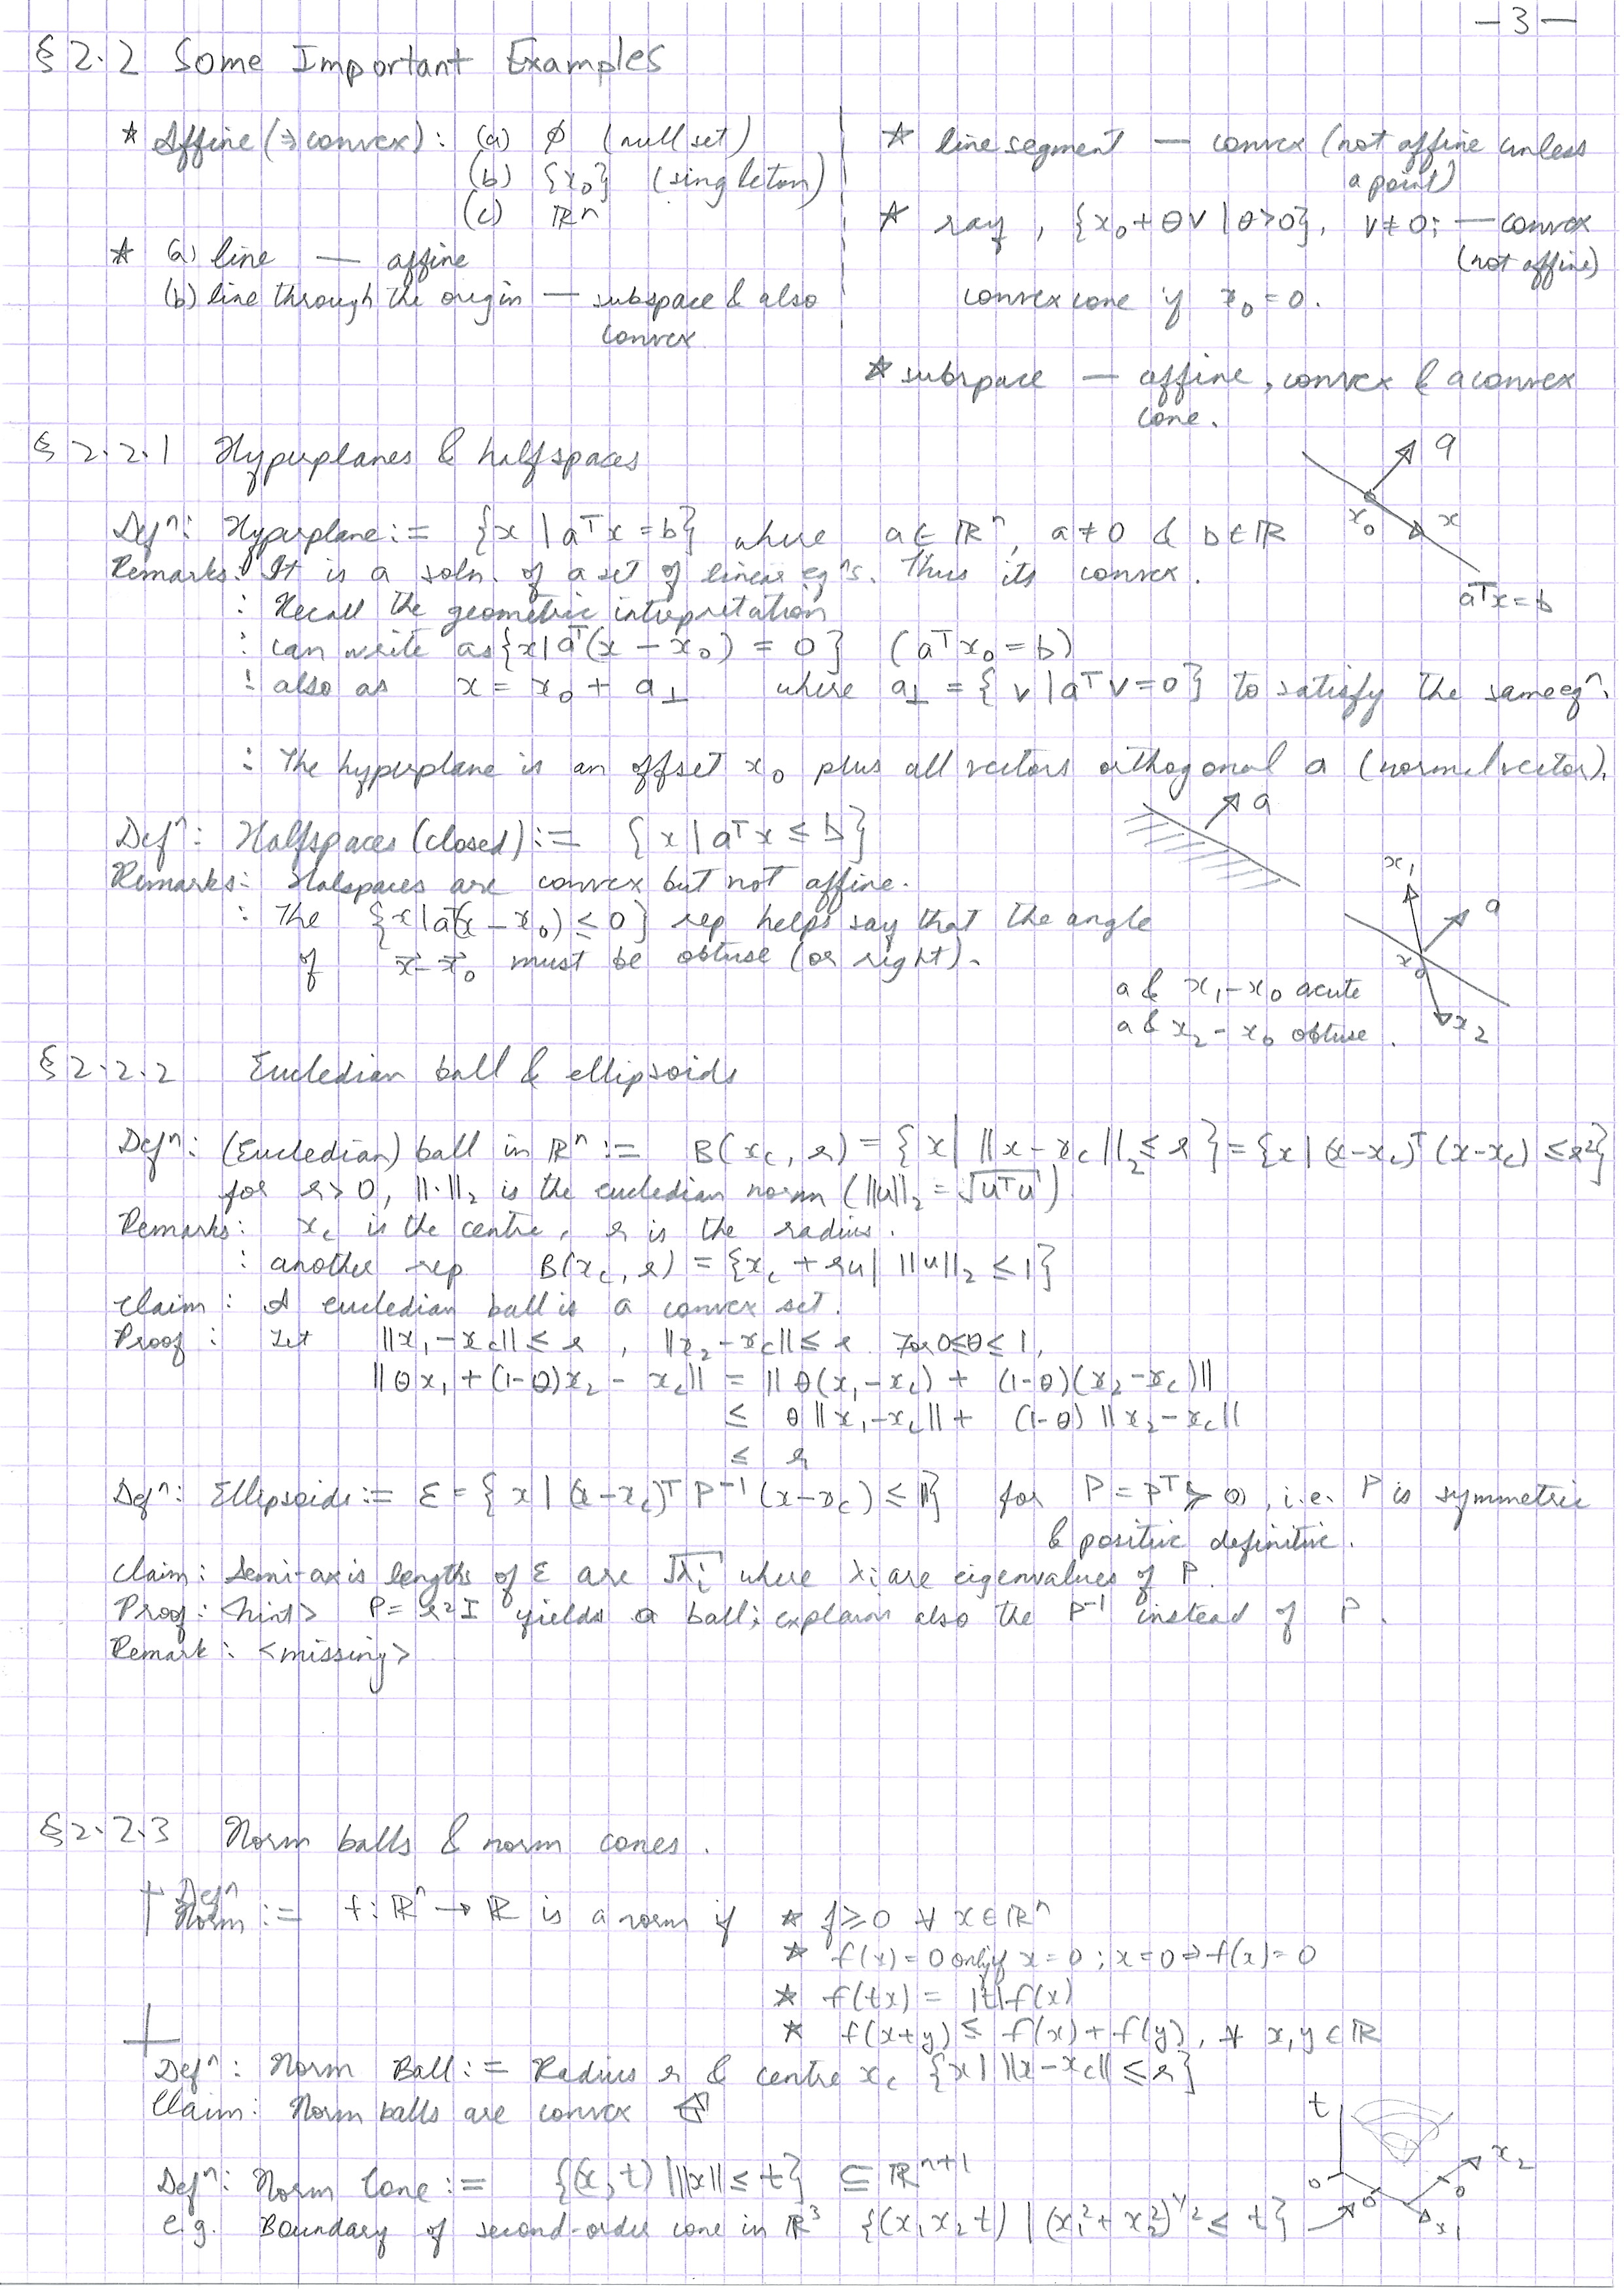 -3-
§ 2.2 Some Important Examples
* Affine (⇒ convex): (a) ∅ (null set)
(b) {x₀} (singleton)
(c) ℝⁿ
* (a) line — affine
(b) line through the origin — subspace & also
convex
* line segment — convex (not affine unless
a point)
* ray, {x₀ + θv | θ>0}, v≠0; — convex
(not affine)
convex cone if x₀ = 0.
* subspace — affine, convex & a convex
cone.
§ 2.2.1 Hyperplanes & halfspaces
Defⁿ: Hyperplane := {x | aᵀx = b} where a ∈ ℝⁿ, a ≠ 0 & b ∈ ℝ
Remarks: It is a soln. of a set of linear eqⁿs. Thus its convex.
: Recall the geometric intrepretation
: can write as {x | aᵀ(x - x₀) = 0} (aᵀx₀ = b)
: also as x = x₀ + a⊥ where a⊥ = {v | aᵀv = 0} to satisfy the same eqⁿ.
: The hyperplane is an offset x₀ plus all vectors orthogonal a (normal vector).
a
x₀
x
aᵀx = b
Defⁿ: Halfspaces (closed) := {x | aᵀx ≤ b}
Remarks: Halspaces are convex but not affine.
: The {x | aᵀ(x - x₀) ≤ 0} rep helps say that the angle
of x⃗ - x⃗₀ must be obtuse (or right).
a
x₁
a
x₀
x₂
a & x₁ - x₀ acute
a & x₂ - x₀ obtuse.
§ 2.2.2 Eucledian ball & ellipsoids
Defⁿ: (Eucledian) ball in ℝⁿ := B(x_c, r) = {x | ||x - x_c||₂ ≤ r} = {x | (x-x_c)ᵀ(x-x_c) ≤ r²}
for r > 0, ||·||₂ is the eucledian norm (||u||₂ = √(uᵀu))
Remarks: x_c is the centre, r is the radius.
: another rep B(x_c, r) = {x_c + ru | ||u||₂ ≤ 1}
Claim: A eucledian ball is a convex set.
Proof: Let ||x₁ - x_c|| ≤ r, ||x₂ - x_c|| ≤ r. For 0≤θ≤1,
||θx₁ + (1-θ)x₂ - x_c|| = ||θ(x₁-x_c) + (1-θ)(x₂-x_c)||
≤ θ||x₁-x_c|| + (1-θ)||x₂-x_c||
≤ r
Defⁿ: Ellipsoids := ℰ = {x | (x-x_c)ᵀ P⁻¹ (x-x_c) ≤ 1} for P = Pᵀ ≻ 0, i.e. P is symmetric
& positive definitive.
Claim: Semi-axis lengths of ℰ are √λᵢ where λᵢ are eigenvalues of P.
Proof: <hint> P = r²I yields a ball; explains also the P⁻¹ instead of P.
Remark: <missing>
§ 2.2.3 Norm balls & norm cones.
Defⁿ
Norm := f: ℝⁿ → ℝ is a norm if * f ≥ 0 ∀ x ∈ ℝⁿ
* f(x) = 0 only if x = 0; x = 0 ⇒ f(x) = 0
* f(tx) = |t| f(x)
* f(x+y) ≤ f(x) + f(y), ∀ x, y ∈ ℝ
Defⁿ: Norm Ball := Radius r & centre x_c {x | ||x-x_c|| ≤ r}
Claim: Norm balls are convex
Defⁿ: Norm Cone := {(x, t) | ||x|| ≤ t} ⊆ ℝⁿ⁺¹
e.g. Boundary of second-order cone in ℝ³ {(x₁ x₂ t) | (x₁² + x₂²)^1/2 ≤ t}
t
x₂
0
0
0
x₁